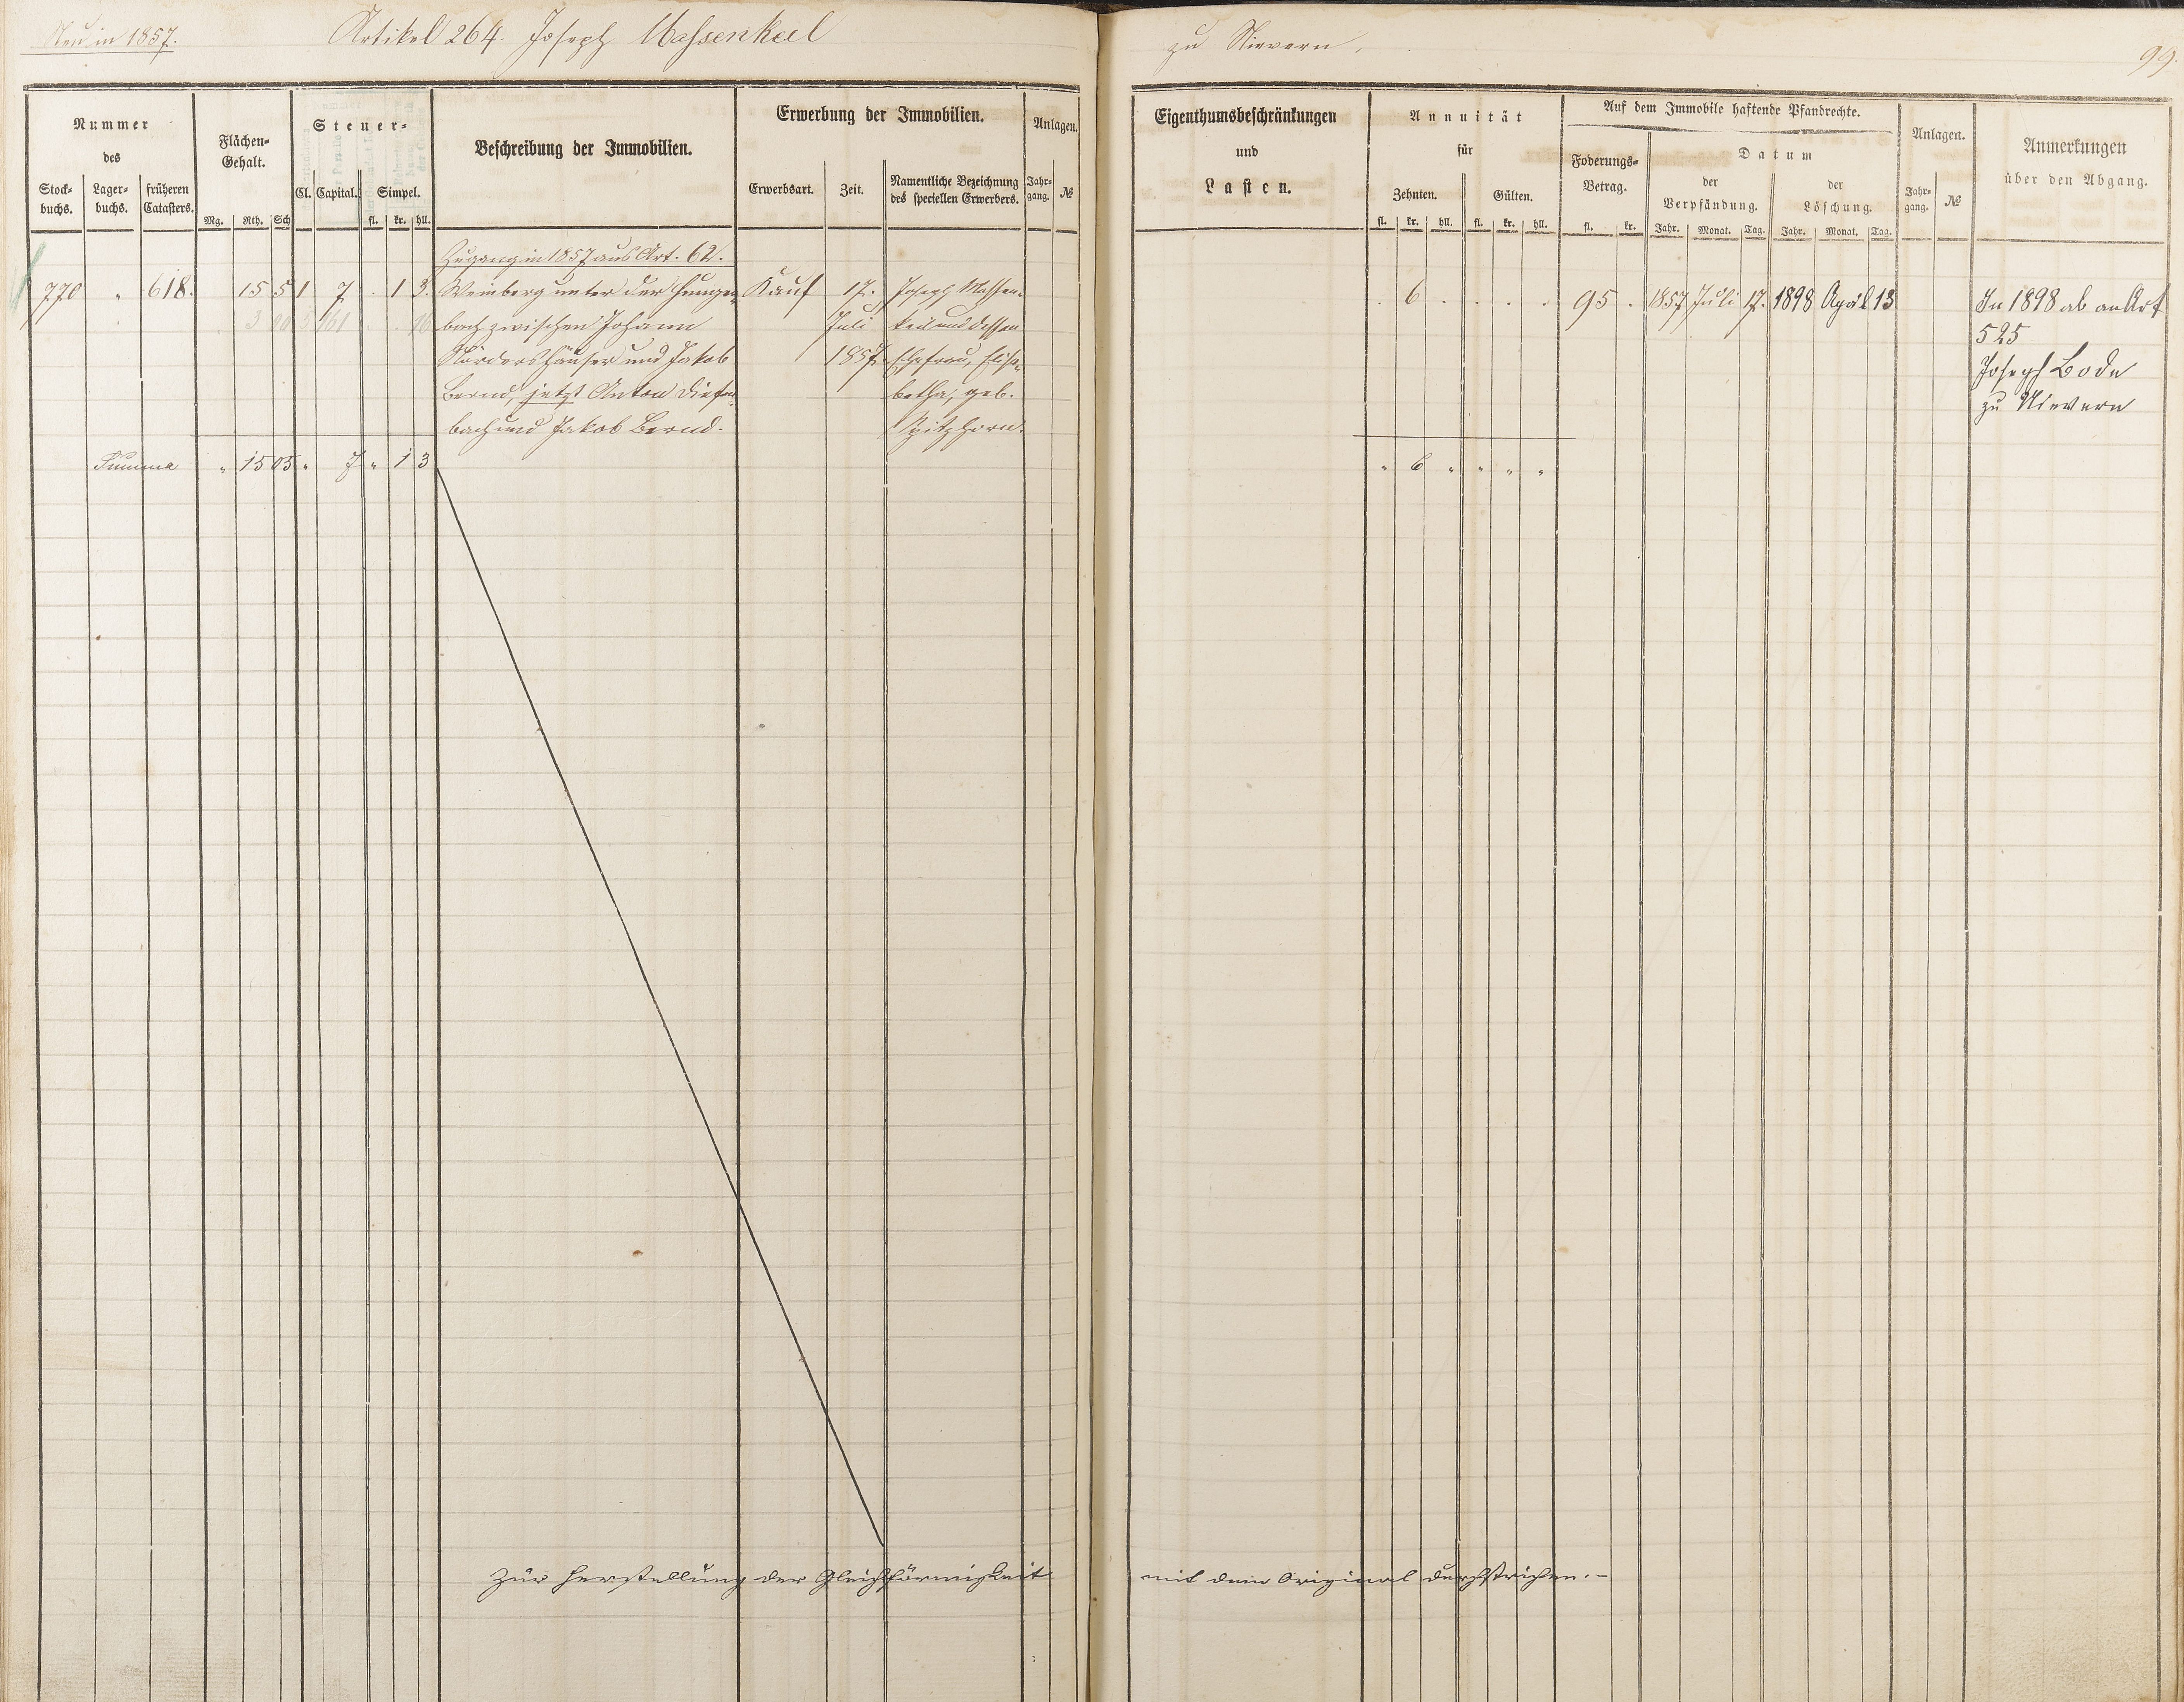 Neu in 1857.
Artikel 264. Joseph Massenkeil
zu Nievern.
99.
Nummer
des
Stock-
buchs.
Lager-
buchs.
früheren
Catasters.
Flächen-
Gehalt.
Mg. Rth. Sch
Steuer-
Cl. Capital. Simpel.
fl. kr. hll.
Beschreibung der Immobilien.
Erwerbung der Immobilien.
Erwerbsart. Zeit.
Namentliche Bezeichnung
des speciellen Erwerbers.
Anlagen.
Jahr-
gang.
№
Eigenthumsbeschränkungen
und
Lasten.
Annuität
für
Zehnten. Gülten.
fl. kr. hll. fl. kr. hll.
Auf dem Immobile haftende Pfandrechte.
Foderungs-
Betrag.
fl. kr.
Datum
der
Verpfändung.
Jahr. Monat. Tag.
der
Löschung.
Jahr. Monat. Tag.
Anlagen.
Jahr-
gang.
№
Anmerkungen
über den Abgang.
Zugang in 1857 aus Art. 62.
770 " 618. 15 5 1 7 . 1 3. Weinberg unter der Kauf 17. Joseph Massen- . 6 . . . . 95 . 1857 Juli 17. 1898 April 13 In 1898 ab an Art
bach zwischen Johann Juli keil und dessen 525
Nördershäuser und Jakob 1857. Ehefrau, Elisa- Joseph Bode
Bernd, jetzt Anton Diefen- betha, geb. zu Nievern
bach und Jakob Bernd. Spitzhorn.
Summa " 15 05 " 7 " 1 3 " 6 " " " "
Zur Herstellung der Gleichförmigkeit mit dem Original durchstrichen. –